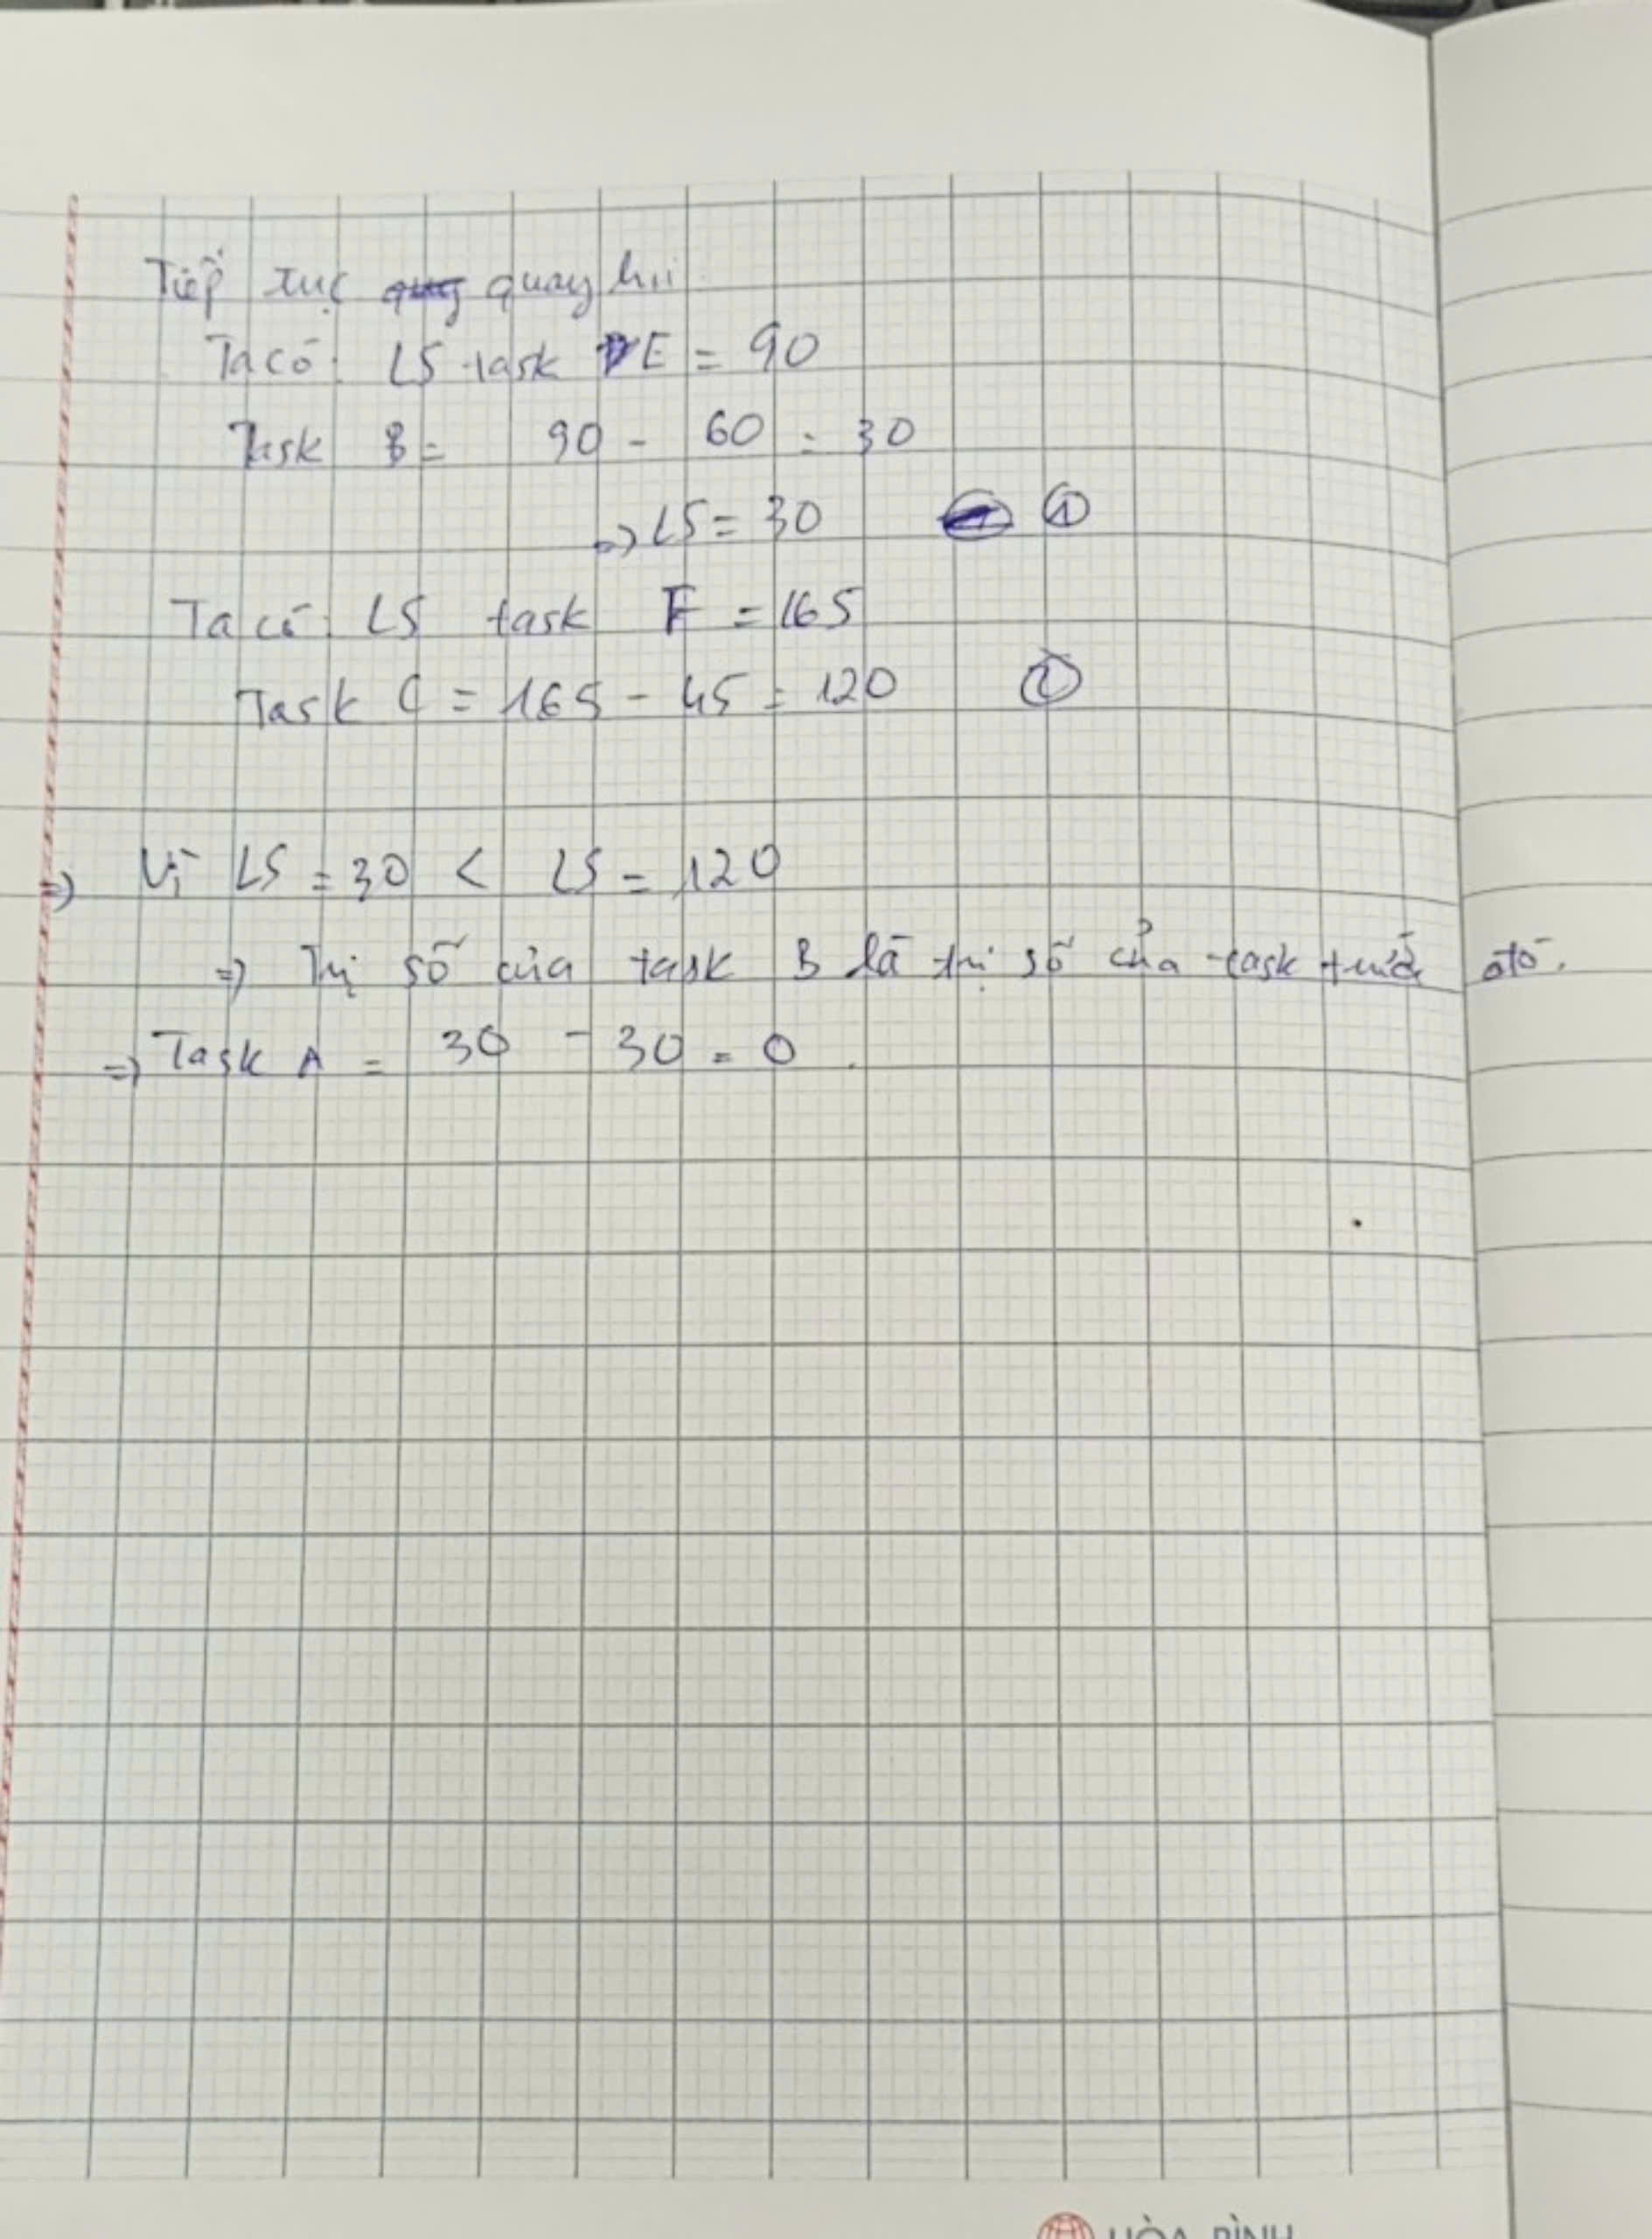 Tiếp tục quay lui
Ta có: LS task E = 90
Task B = 90 - 60 = 30
=> LS = 30 ①
Ta có: LS task F = 165
Task C = 165 - 45 = 120 ②
=> Vì LS = 30 < LS = 120
=> Trị số của task B là trị số của task trước đó.
=> Task A = 30 - 30 = 0.
HÒA BÌNH